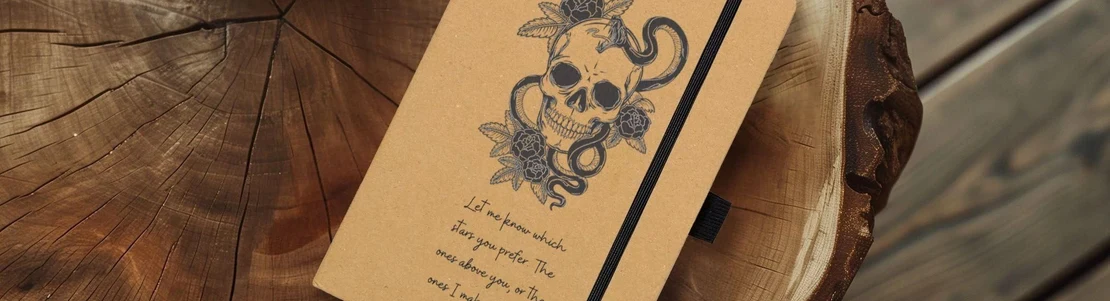 Let me know which
stars you prefer The
ones above you, or the
ones I